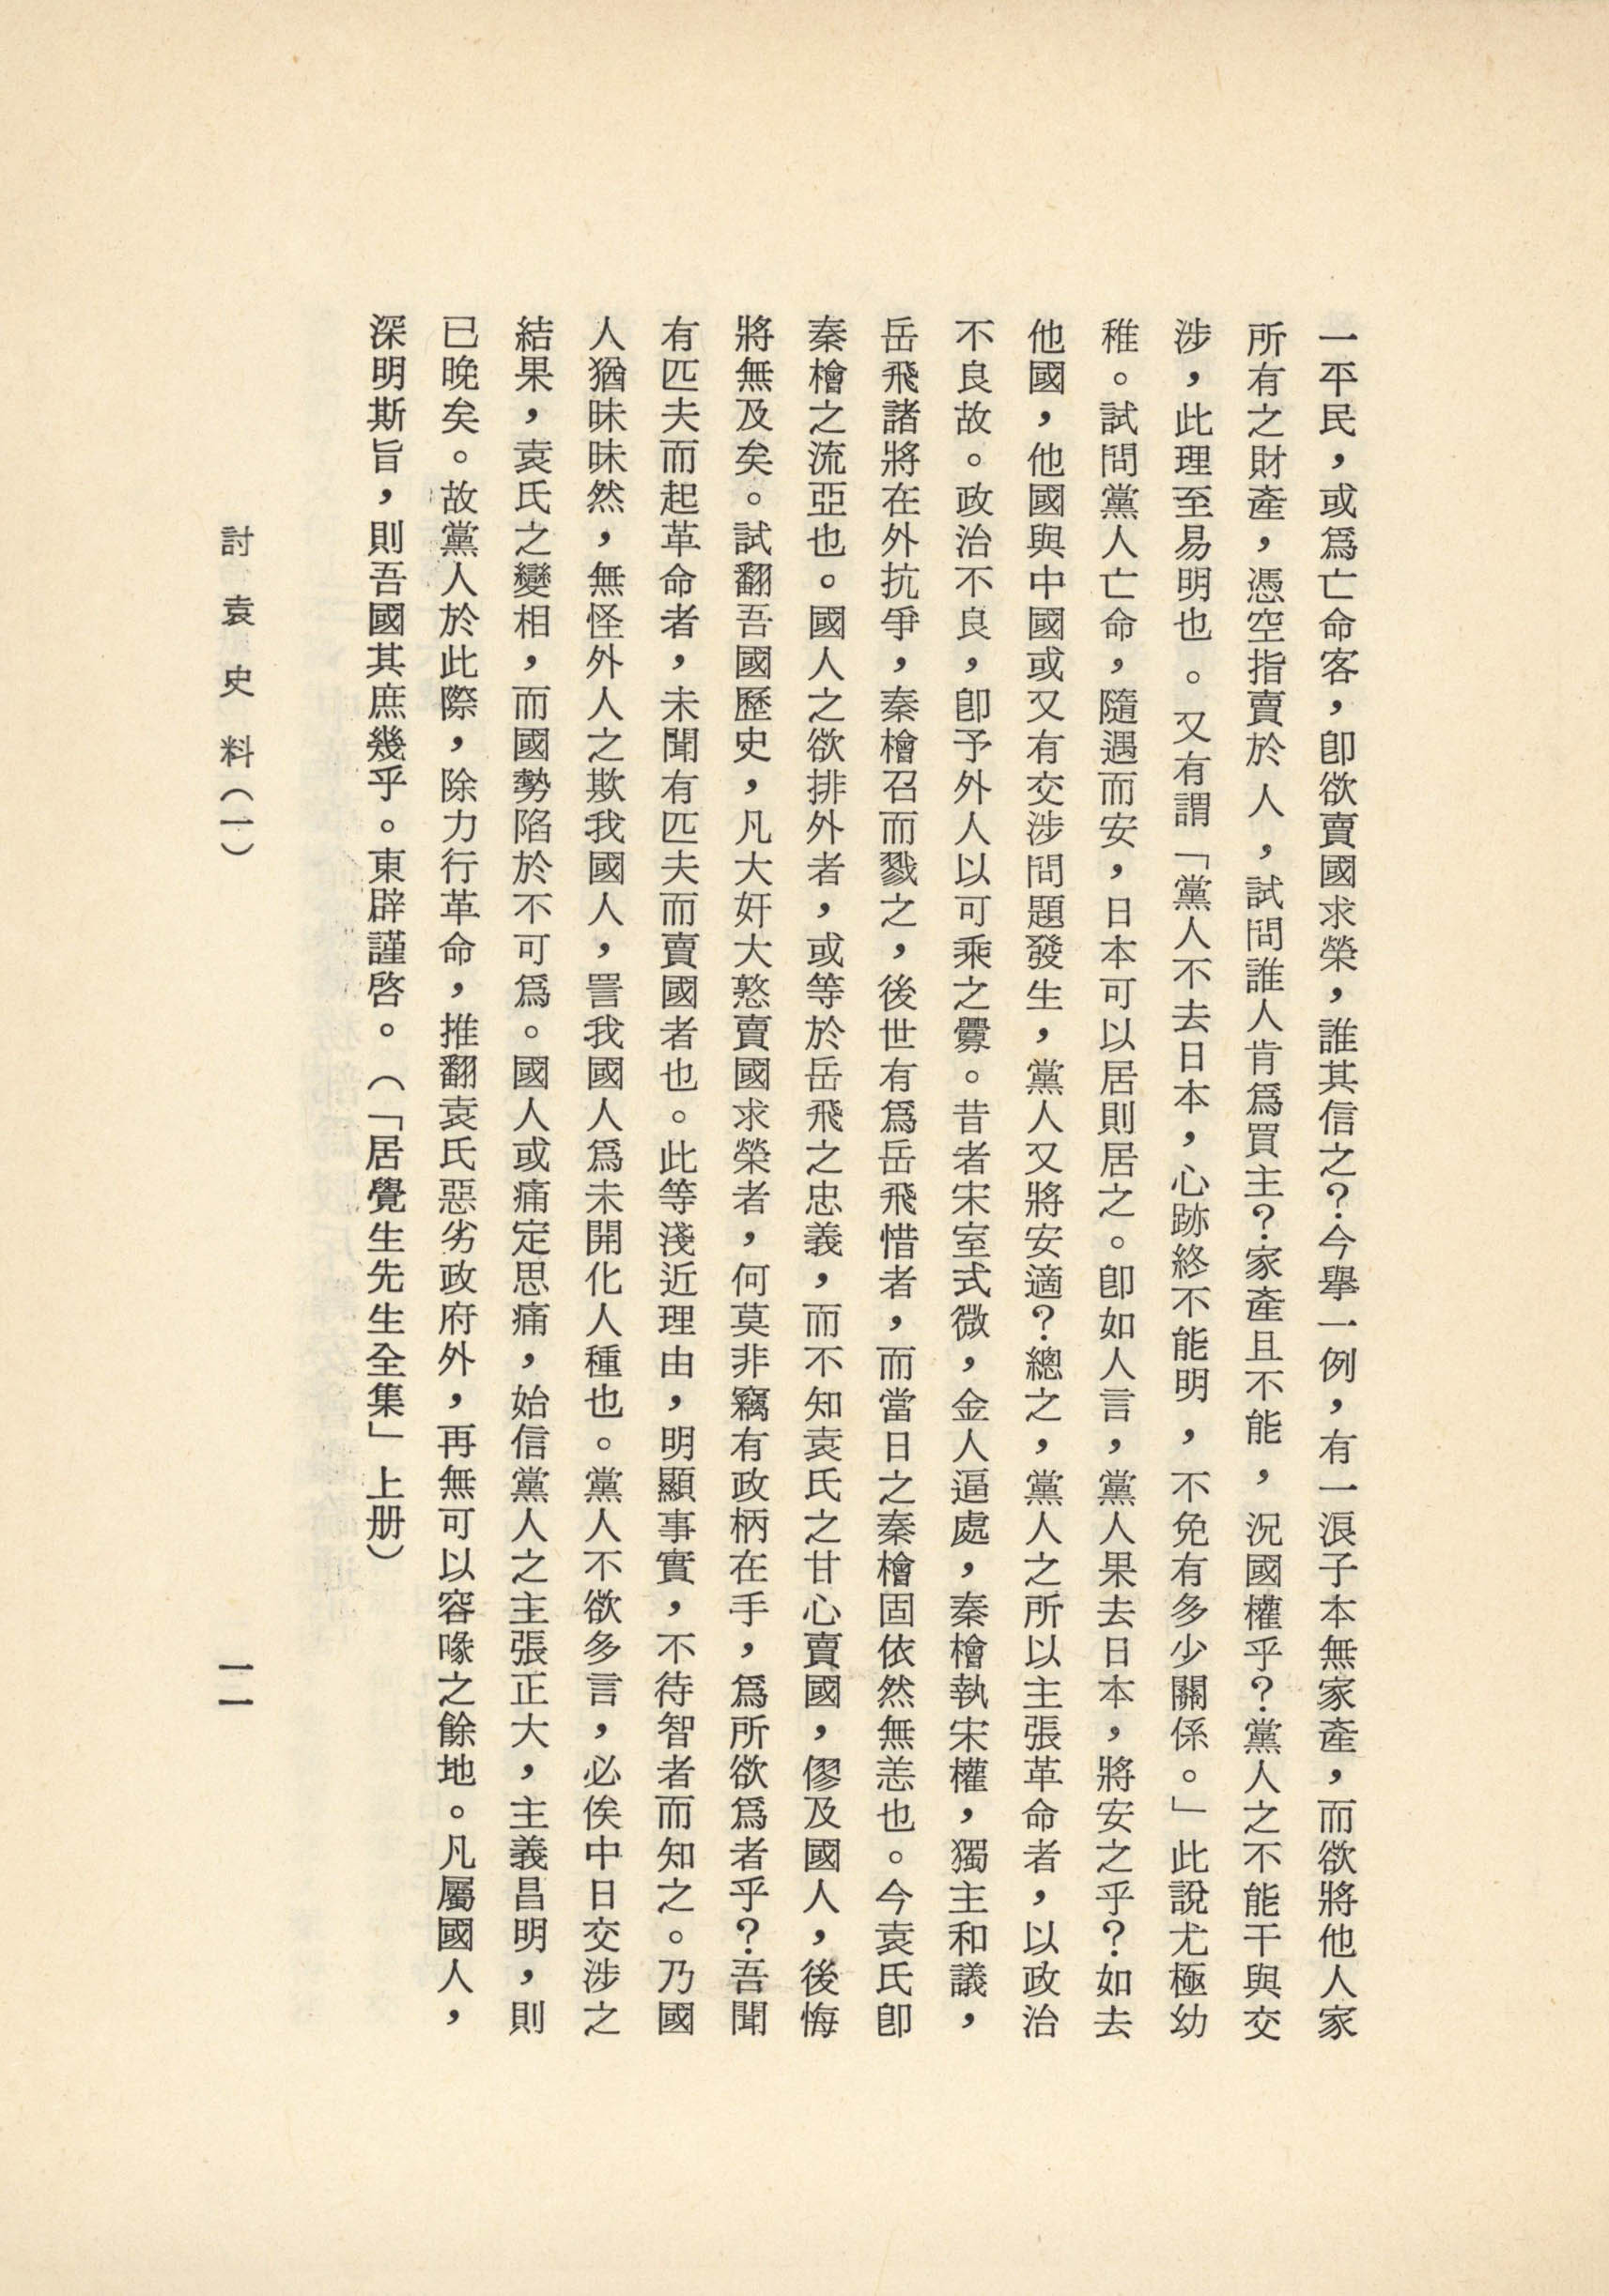 一平民，或爲亡命客，卽欲賣國求榮，誰其信之？今舉一例，有一浪子本無家產，而欲將他人家
所有之財產，憑空指賣於人，試問誰人肯爲買主？家產且不能，況國權乎？黨人之不能干與交
涉，此理至易明也。又有謂「黨人不去日本，心跡終不能明，不免有多少關係。」此說尤極幼
稚。試問黨人亡命，隨遇而安，日本可以居則居之。卽如人言，黨人果去日本，將安之乎？如去
他國，他國與中國或又有交涉問題發生，黨人又將安適？總之，黨人之所以主張革命者，以政治
不良故。政治不良，卽予外人以可乘之釁。昔者宋室式微，金人逼處，秦檜執宋權，獨主和議，
岳飛諸將在外抗爭，秦檜召而戮之，後世有爲岳飛惜者，而當日之秦檜固依然無恙也。今袁氏卽
秦檜之流亞也。國人之欲排外者，或等於岳飛之忠義，而不知袁氏之甘心賣國，僇及國人，後悔
將無及矣。試翻吾國歷史，凡大奸大憝賣國求榮者，何莫非竊有政柄在手，爲所欲爲者乎？吾聞
有匹夫而起革命者，未聞有匹夫而賣國者也。此等淺近理由，明顯事實，不待智者而知之。乃國
人猶昧昧然，無怪外人之欺我國人，詈我國人爲未開化人種也。黨人不欲多言，必俟中日交涉之
結果，袁氏之變相，而國勢陷於不可爲。國人或痛定思痛，始信黨人之主張正大，主義昌明，則
已晚矣。故黨人於此際，除力行革命，推翻袁氏惡劣政府外，再無可以容喙之餘地。凡屬國人，
深明斯旨，則吾國其庶幾乎。東辟謹啓。（「居覺生先生全集」上册）
討袁史料（一）
一一